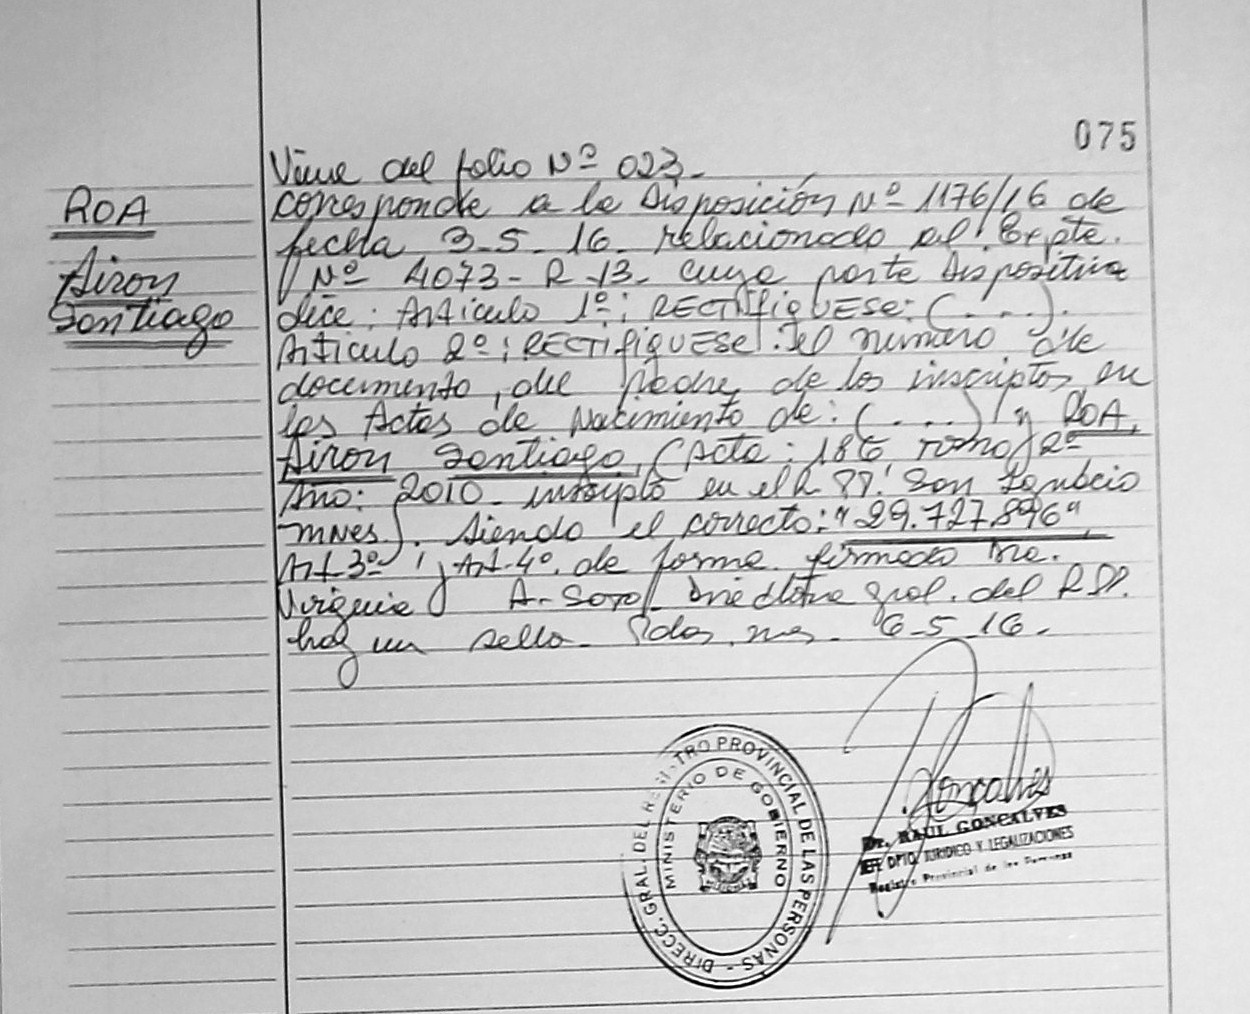 075
Viene del folio Nº 023.-
ROA
Airon
Santiago
corresponde a la Disposición Nº 1176/16 de
fecha 3-5-16. relacionado al Expte.
Nº 4073-R-13- cuya parte dispositiva
dice: Articulo 1º: RECTIFIQUESE: (....).
Articulo 2º: RECTIFIQUESE: el numero de
documento, del padre de los inscriptos en
las Actas de Nacimiento de: (....) y ROA,
Airon Santiago, (Acta: 186 tomo 2º
Año: 2010 - inscripto en el R.PP. San Ignacio
MNES). siendo el correcto: "29.727.896",
Art 3º y Art-4º. de forma. firmado
Virginia A. Soto directora gral. del R.PP.
hay un sello. Pdas, Mnes. 6-5-16.
DIRECC. GRAL. DEL REGISTRO PROVINCIAL DE LAS PERSONAS -
MINISTERIO DE GOBIERNO
Goncalves
Dr. RAUL GONCALVES
JEFE DPTO. JURIDICO Y LEGALIZACIONES
Registro Provincial de las Personas